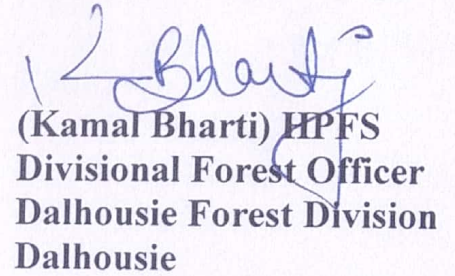 K Bharti
(Kamal Bharti) HPFS
Divisional Forest Officer
Dalhousie Forest Division
Dalhousie